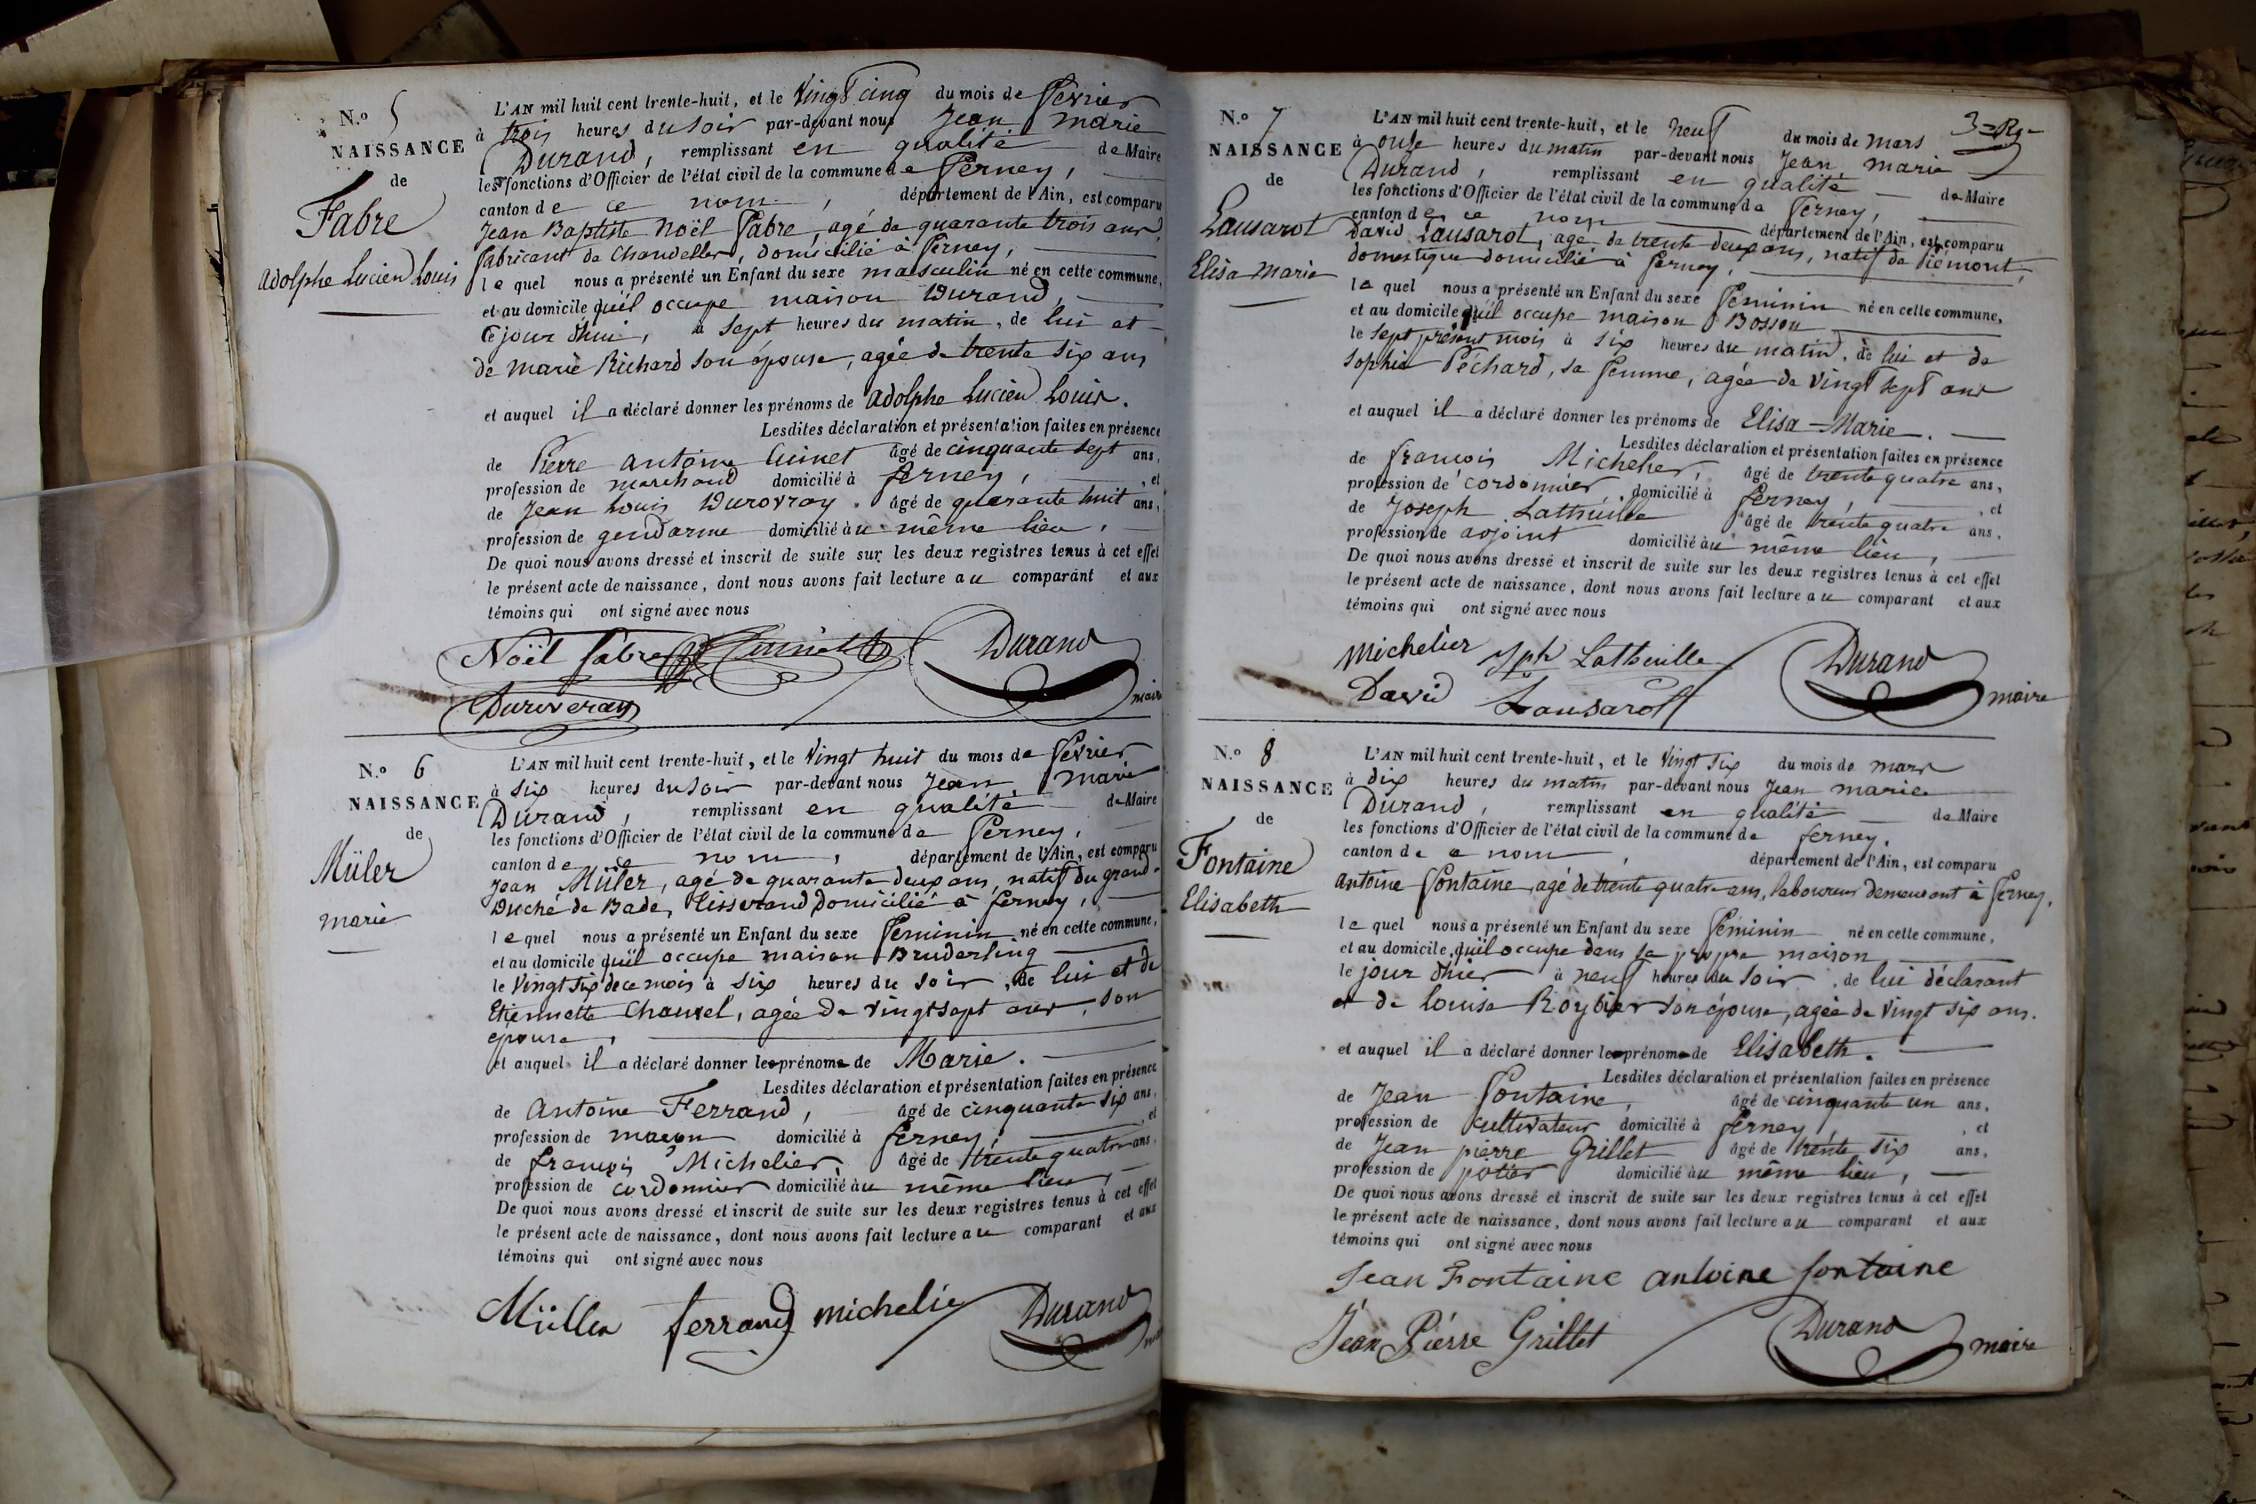 N.o 5
NAISSANCE
de
Fabre
Adolphe Lucien Louis
L'AN mil huit cent trente-huit, et le vingt cinq du mois de février
à trois heures du soir par-devant nous Jean marie
Durand, remplissant en qualité de Maire
les fonctions d'Officier de l'état civil de la commune de ferney,
canton de ce nom, département de l'Ain, est comparu
Jean Baptiste Noël Fabre, agé de quarante trois ans,
fabricant de Chandelles, domicilié à ferney,
lequel nous a présenté un Enfant du sexe masculin né en cette commune,
et au domicile qu'il occupe maison Durand,
Cejour d'hui, à sept heures du matin, de lui et
de marie Richard son épouse, agée de trente six ans
et auquel il a déclaré donner les prénoms de Adolphe Lucien Louis.
Lesdites déclaration et présentation faites en présence
de Pierre antoine Guinet âgé de cinquante sept ans,
profession de marchand domicilié à ferney, , et
de Jean Louis Durovray. âgé de quarante huit ans,
profession de gendarme domicilié au même lieu,
De quoi nous avons dressé et inscrit de suite sur les deux registres tenus à cet effet
le présent acte de naissance, dont nous avons fait lecture au comparant et aux
témoins qui ont signé avec nous
Noël fabre Guinet Durand
maire
N.o 6
NAISSANCE
de
Müler
marie
L'AN mil huit cent trente-huit, et le vingt huit du mois de février
à six heures du soir par-devant nous Jean marie
Durand, remplissant en qualité de Maire
les fonctions d'Officier de l'état civil de la commune de Ferney,
canton de ce nom, département de l'Ain, est comparu
Jean Müler, agé de quarante deux ans, natif du grand
Duché de Bade, tisserand domicilié à ferney,
lequel nous a présenté un Enfant du sexe féminin né en cette commune,
et au domicile qu'il occupe maison Bruderling
le vingt six de ce mois à six heures du soir, de lui et de
Etiennette Chauvel, agée de vingt sept ans, son
épouse,
et auquel il a déclaré donner le prénom de Marie.
Lesdites déclaration et présentation faites en présence
de Antoine Ferrand, âgé de cinquante six ans,
profession de maçon domicilié à ferney, , et
de françois Michelier, âgé de trente quatre ans,
profession de cordonnier domicilié au même lieu,
De quoi nous avons dressé et inscrit de suite sur les deux registres tenus à cet effet
le présent acte de naissance, dont nous avons fait lecture au comparant et aux
témoins qui ont signé avec nous
Müller ferrand michelier Durand
N.o 7
NAISSANCE
de
Lausarot
Elisa Marie
L'AN mil huit cent trente-huit, et le neuf du mois de mars
à onze heures du matin par-devant nous Jean marie
Durand, remplissant en qualité de Maire
les fonctions d'Officier de l'état civil de la commune de ferney,
canton de ce nom département de l'Ain, est comparu
David Lausarot, agé de trente deux ans, natif de Piémont,
domestique domicilié à ferney,
lequel nous a présenté un Enfant du sexe féminin né en cette commune,
et au domicile qu'il occupe maison Bosson
le sept présent mois à six heures du matin, de lui et de
Sophie Péchard, sa femme, agée de vingt sept ans
et auquel il a déclaré donner les prénoms de Elisa-Marie.
Lesdites déclaration et présentation faites en présence
de françois Michelier, âgé de trente quatre ans,
profession de cordonnier, domicilié à ferney, , et
de Joseph Lathuille âgé de trente quatre ans,
profession de adjoint domicilié au même lieu,
De quoi nous avons dressé et inscrit de suite sur les deux registres tenus à cet effet
le présent acte de naissance, dont nous avons fait lecture au comparant et aux
témoins qui ont signé avec nous
Michelier Jph Lathuille Durand
David Lausarot maire
N.o 8
NAISSANCE
de
Fontaine
Elisabeth
L'AN mil huit cent trente-huit, et le vingt six du mois de mars
à dix heures du matin par-devant nous Jean marie
Durand, remplissant en qualité de Maire
les fonctions d'Officier de l'état civil de la commune de ferney,
canton de ce nom, département de l'Ain, est comparu
Antoine Fontaine, agé de trente quatre ans, laboureur demeurant à ferney,
lequel nous a présenté un Enfant du sexe féminin né en cette commune,
et au domicile qu'il occupe dans sa propre maison
le jour d'hier à neuf heures du soir, de lui déclarant
et de louise Roybier son épouse, agée de vingt six ans.
et auquel il a déclaré donner le prénom de Elisabeth.
Lesdites déclaration et présentation faites en présence
de Jean Fontaine, âgé de cinquante un ans,
profession de cultivateur domicilié à ferney, , et
de Jean pierre Grillet âgé de trente six ans,
profession de potier domicilié au même lieu,
De quoi nous avons dressé et inscrit de suite sur les deux registres tenus à cet effet
le présent acte de naissance, dont nous avons fait lecture au comparant et aux
témoins qui ont signé avec nous
Jean Fontaine antoine fontaine
Jean Piérre Grillet Durand maire